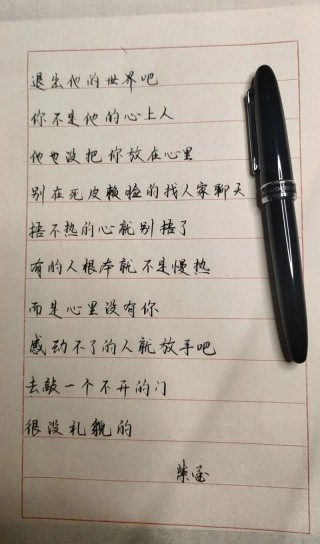 退出他的世界吧
你不是他的心上人
他也没把你放在心里
别在死皮赖脸的找人家聊天
捂不热的心就别捂了
有的人根本就不是慢热
而是心里没有你
感动不了的人就放手吧
去敲一个不开的门
很没礼貌的